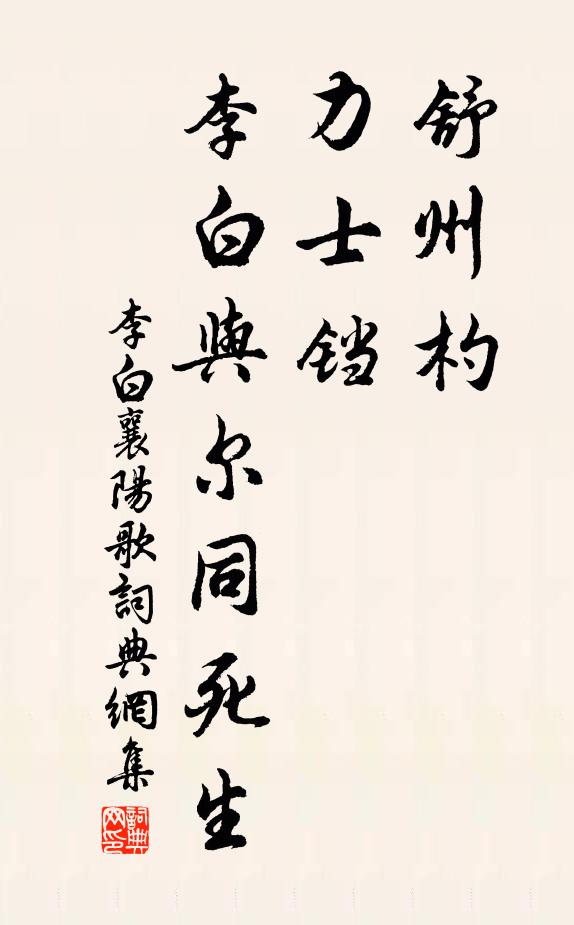 舒州杓
力士铛
李白與尔同死生
李白襄陽歌詞典網集
詞典
网印